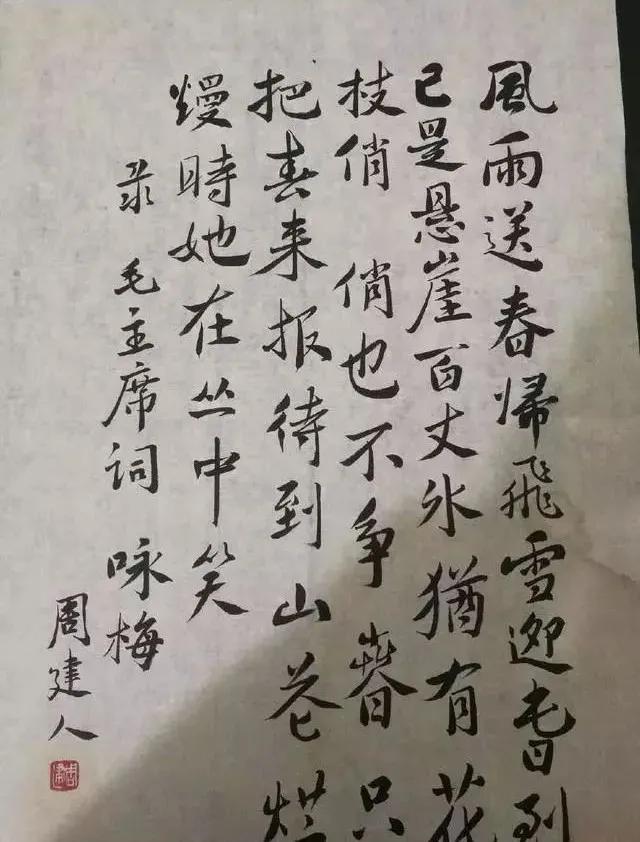 風雨送春帰飛雪迎春到
已是悬崖百丈氷猶有花
枝俏 俏也不争春只
把春来报待到山花烂
熳時她在丛中笑
录 毛主席词 咏梅
周建人